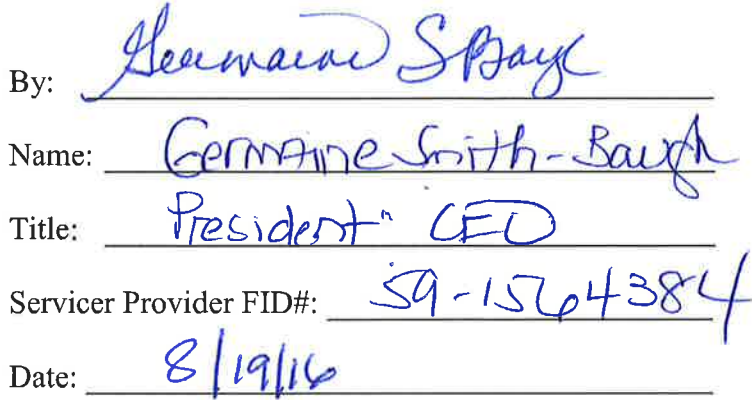 By: Germaine S Baugh
Name: Germaine Smith-Baugh
Title: President " CEO
Servicer Provider FID#: 59-1564384
Date: 8/19/16